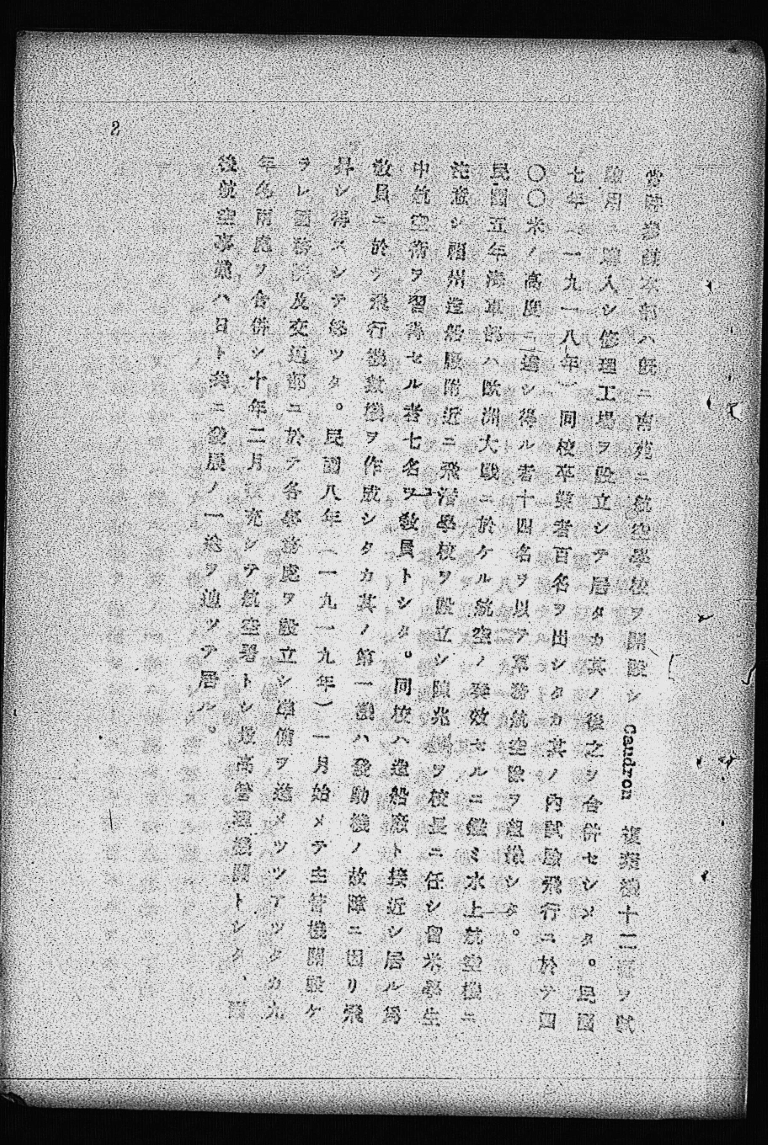 2
當時參謀本部ハ既ニ南苑ニ航空學校ヲ開設シ Caudron 複葉機十二臺ヲ試
驗用ニ購入シ修理工場ヲ設立シテ居タカ其ノ後之ヲ合併セシメタ。民國
七年（一九一八年）同校卒業者百名ヲ出シタカ其ノ內試驗飛行ニ於テ四
〇〇米ノ高度ニ達シ得ル者十四名ヲ以テ軍務航空隊ヲ組織シタ。
民國五年海軍部ハ歐洲大戰ニ於ケル航空ノ奏效セルニ鑑ミ水上航空機ニ
注意シ福州造船廠附近ニ飛潛學校ヲ設立シ陳兆鏘ヲ校長ニ任シ留米學生
中航空術ヲ習得セル者七名ヲ敎員トシタ。同校ハ造船廠ト接近シ居ル爲
敎員ニ於テ飛行機數機ヲ作成シタカ其ノ第一機ハ發動機ノ故障ニ因リ飛
昇シ得スシテ終ツタ。民國八年（一九一九年）一月始メテ主管機關設ケ
ラレ國務院及交通部ニ於テ各事務處ヲ設立シ準備ヲ進メツツアツタカ九
年冬兩處ヲ合併シ十年二月擴充シテ航空署トシ最高管理機關トシタ、爾
後航空事業ハ日ト共ニ發展ノ一途ヲ辿ツテ居ル。